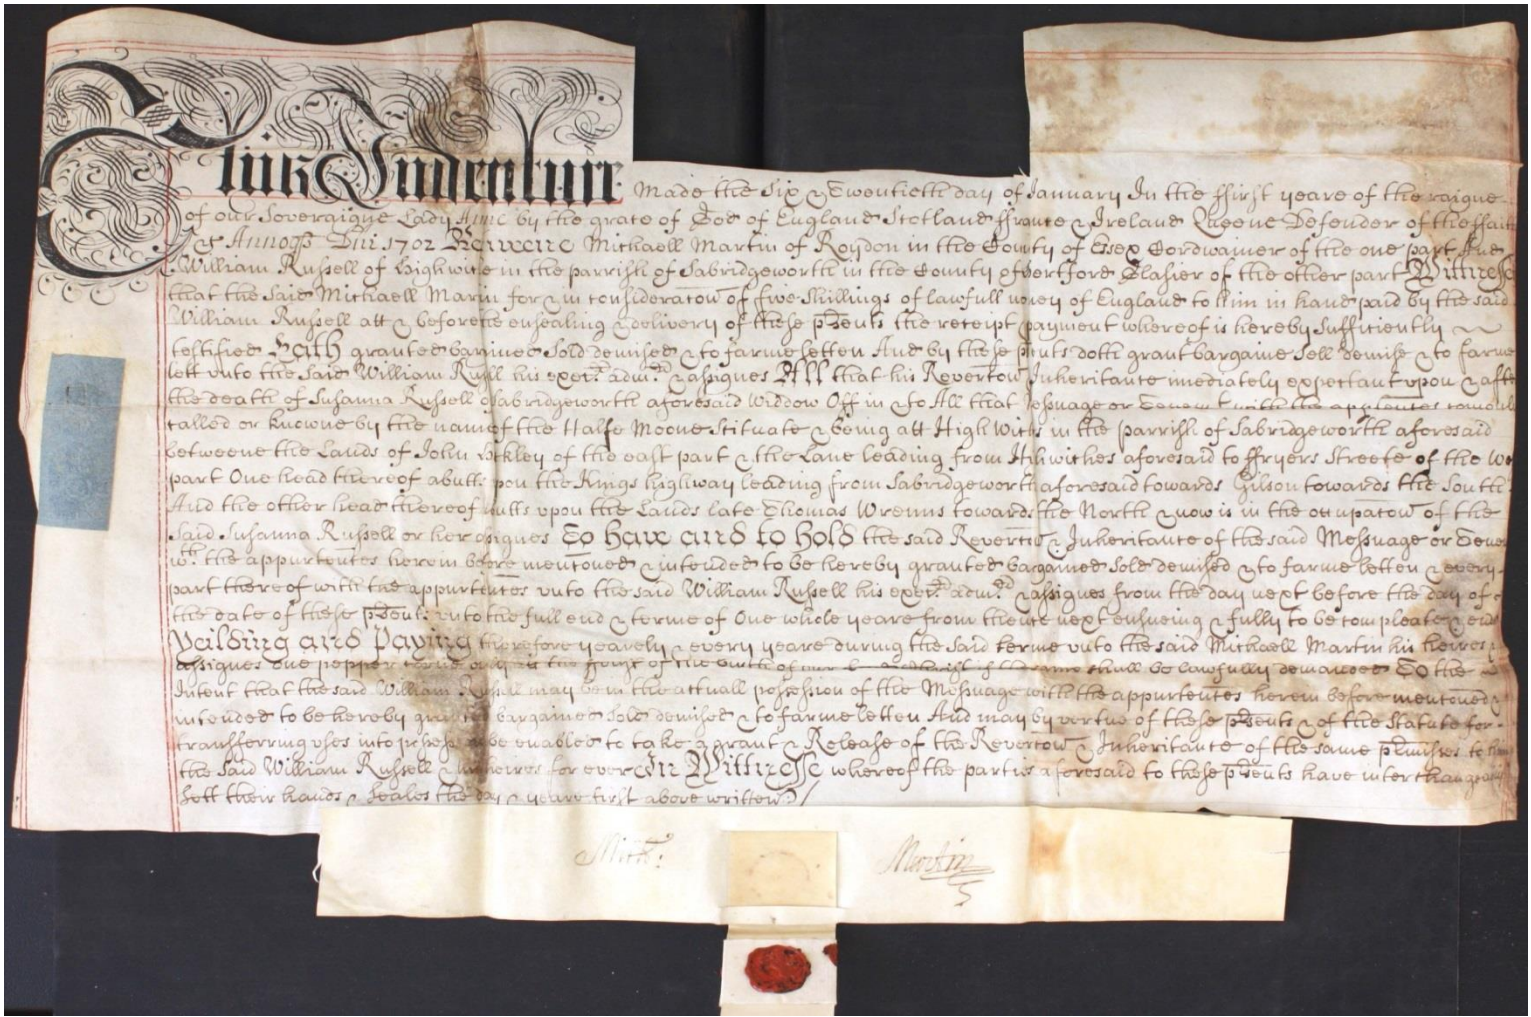 This Indenture Made the Six & Twentieth day of January In the ffirst yeare of the raigne
of our Soveraigne Lady Anne by the grace of God of England Scotland ffrance & Ireland Queene Defender of the ffaith
&c Annoqs Dni 1702 Betweene Michaell Martin of Roydon in the County of Essex Cordwainer of the one part And
William Russell of highwich in the parrish of Sabridgeworth in the County of hertford Glasier of the other part Wittnesseth
that the Said Michaell Martin for & in consideracon of five Shillings of lawfull money of England to him in hand paid by the said
William Russell att & before the ensealing & delivery of these psents the receipt & payment whereof is hereby Sufficiently
testified Hath granted bargained Sold demised & to farme letten And by these psents doth grant bargaine Sell demise & to farme
lett unto the Said William Russell his execrs admrs & assignes All that his Revercon & Inheritance imediately expectant upon & after
the death of Susanna Russell of Sabridgeworth aforesaid Widdow Off in & to All that Messuage or Tenemt with the appurtences comonly
called or knowne by the name of the Halfe Moone Scituate & being att High Wich in the parrish of Sabridgeworth aforesaid
betweene the Lands of John of the east part & the Lane leading from aforesaid to ffryers Streete of the West
part One head thereof abutts upon the Kings highway leading from Sabridgeworth aforesaid towards Gilson towards the South
And the other head thereof abutts upon the Lands late Thomas Wrenns towards the North & now is in the occupacon of the
Said Susanna Russell or her assignes To have and to hold the said Revercon & Inheritance of the said Messuage or Tenemt
wth the appurtences herein before mencconed & intended to be hereby granted bargained Sold demised & to farme letten & every
part thereof with the appurtences unto the said William Russell his execrs admrs & assignes from the day next before the day of
the date of these psents unto the full end & terme of One whole yeare from thence next ensueing & fully to be compleate & ended
Yeilding and Paying therefore yearely & every yeare during the said terme unto the said Michaell Martin his heires or
assignes one pepper corne onely att the ffeast of the birth of our Lord Christ if the same shall be lawfully demanded To the
Intent that the said William Russell may be in the actuall possession of the Messuage with the appurtences herein before mencconed &
intended to be hereby granted bargained Sold demised & to farme letten And may by vertue of these psents & of the Statute for
transferring uses into possession be enabled to take a grant & Release of the Revercon & Inheritance of the same pmisses to him
the Said William Russell & his heires for ever In Wittnesse whereof the parties aforesaid to these psents have interchangeably
Sett their hands & Seales the day & yeare first above written
Mich: Martin